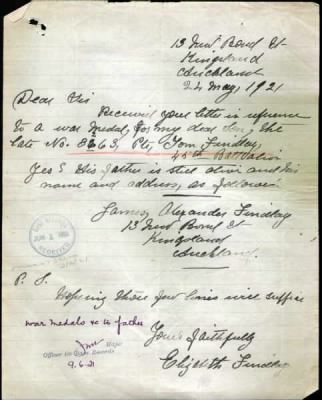 13 New Bond St
Kingsland
Auckland
24 May, 1921
Dear Sir
Received your letter in referance
to a war Medal, for my dear Son, the
late No. 3263, Pte, Tom Findlay,
45th Battalion
Yes his father is still alive and his
name and address, as follows:
James Alexander Findlay
13 New Bond St
Kingsland
Auckland.
P. S.
Hopeing these few lines will suffice
war medals &c to father
Yours faithfully
Major
Officer i/c Base Records
9.6.21
Elizabeth Findlay